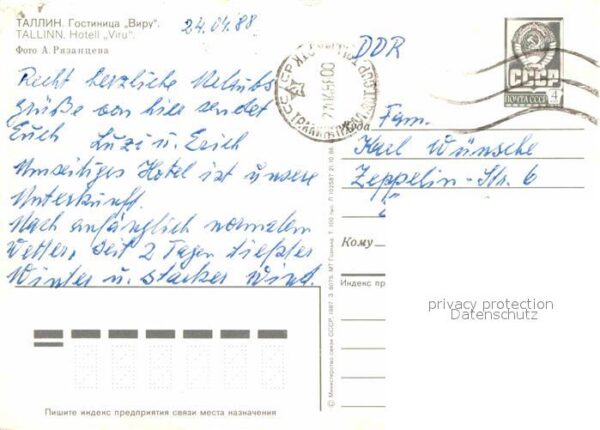 ТАЛЛИН. Гостиница „Виру".
TALLINN. Hotell „Viru".
Фото А. Рязанцева
24.04.88
Recht herzliche Urlaubs
grüße von hier sendet
Euch Luzi u. Erich
Umseitiges Hotel ist unsere
Unterkunft.
Nach anfänglich normalem
Wetter, seit 2 Tagen tiefster
Winter u. starker Wind.
Пишите индекс предприятия связи места назначения
© Министерство связи СССР, 1987. З. 6075. МТ Гознака. Т. 100 тыс. П 102587 21.10.86
DDR
СССР
ПОЧТА СССР
4
Fam.
Karl Wünsche
Zeppelin-Str. 6
Кому
Индекс пр
privacy protection
Datenschutz